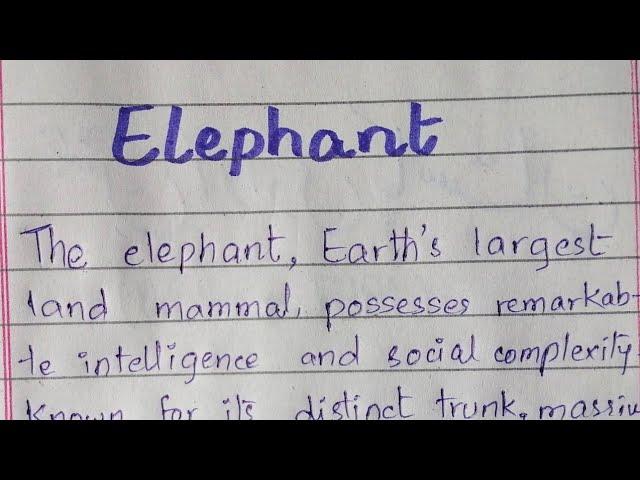 Elephant
The elephant, Earth's largest
land mammal, possesses remarkab-
le intelligence and social complexity
Known for its distinct trunk, massiv